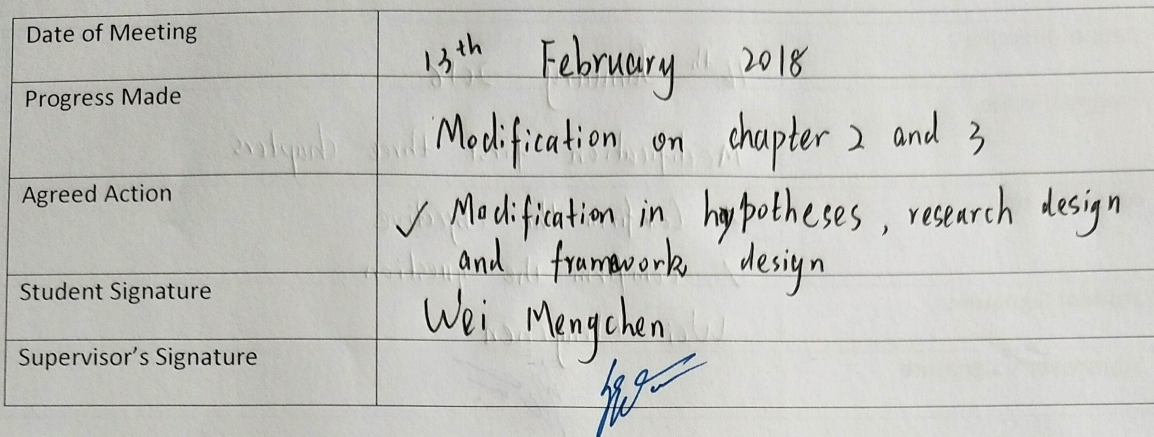 Date of Meeting
13th February 2018
Progress Made
Modification on chapter 2 and 3
Agreed Action
✓ Modification in hypotheses, research design
and framework design
Student Signature
Wei Mengchen
Supervisor's Signature